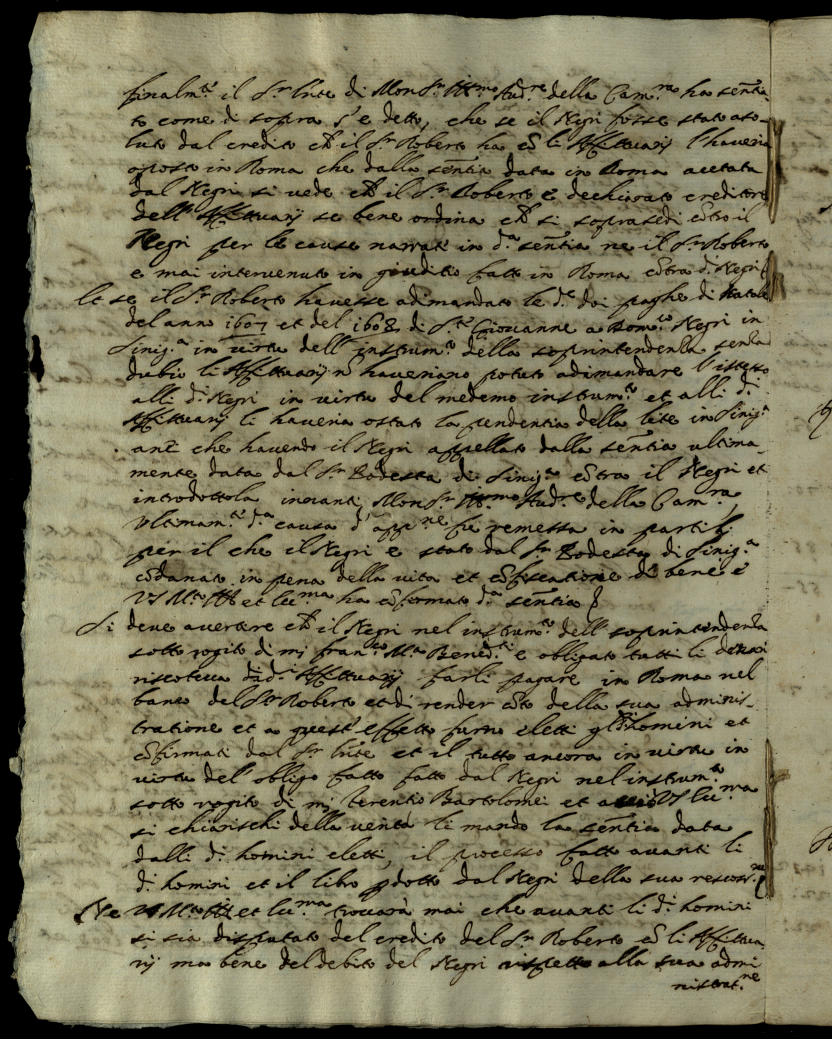 finalm.te il S.r lnte di Mons.r Ill.mo Aud.re della Cam.ra ha senten
to come di sopra s'e detto, che se il Negri fosse stato aso-
luto dal credito ch il S.r Roberto ha cō li Affittuarij l'haveria
oposto in Roma che dalla sentia data in Roma acetata
dal Negri si vede ch il S.r Roberto e dechiarato creditore
dell' Affittuarij se bene ordina ch si soprasedi cōtro il
Negri per le cause narrati in d.a sentia ne il S.r Roberto
e mai intervenuto in giuditio fatto in Roma cōtra d. Negri
Et se il S.r Roberto havesse adimandato le d.e doi paghe di Natale
del anno 1607 et del 1608 di S.to Giovanne a Dom.co Negri in
Sinig.a in virtu dell' instrum.to della soprintendenza senza
dubio li Affittuarij n haveriano potuto adimandare l'istesso
alli d. Negri in virtu del medemo instrum.to et alli d.i
Affittuarij li haveria ostato la pendentia della lite in Sinig.a
anz che havendo il Negri appellato dalla sentia ultima-
mente data dal S.r Podesta di Sinig.a cōtra il Negri et
introdottola inanti Mons.r Ill.mo Aud.re della Cam.ra
Ultimam.te d.a causa d' app.ne fu remessa in partib.
per il che il Negri e stato dal S.r Podesta di Sinig.a
cōdanato in pena della vita et cōfiscatione de bene e
VS M.to Ill et Ecc.ma ha cōfermato d.a sentia
Si deve avertire ch il Negri nel instrum.to dell' soprintendenza
sotto rogito di mj fran.co M.a Bened.ti e obligato tutti li denari
riscoteva da d.i Affittuarij farli pagare in Roma nel
banco del S.r Roberto et di render cōto della sua adminis-
tratione et a quest' effetto furno eletti gl' homini et
cōfirmati dal S.r lnte et il tutto ancora in virtu in
virtu del' obligo fatto fatto dal Negri nel instrum.to
sotto rogito di mj Terentio Bartolomei et a VS Ecc.ma
si chiarischi della verita li mando la sentia data
dalli d.i homini eletti, il processo fatto avanti li
d.i homini et il libro pdotto dal Negri della sua rescoss.ne
Ne VS M.to Ill et Ecc.ma trovara mai che avanti li d.i homini
si sia disputato del credito del S.r Roberto cō li Affittua
rij ma bene del debito del Negri rispetto alla sua admi
nistrat.ne